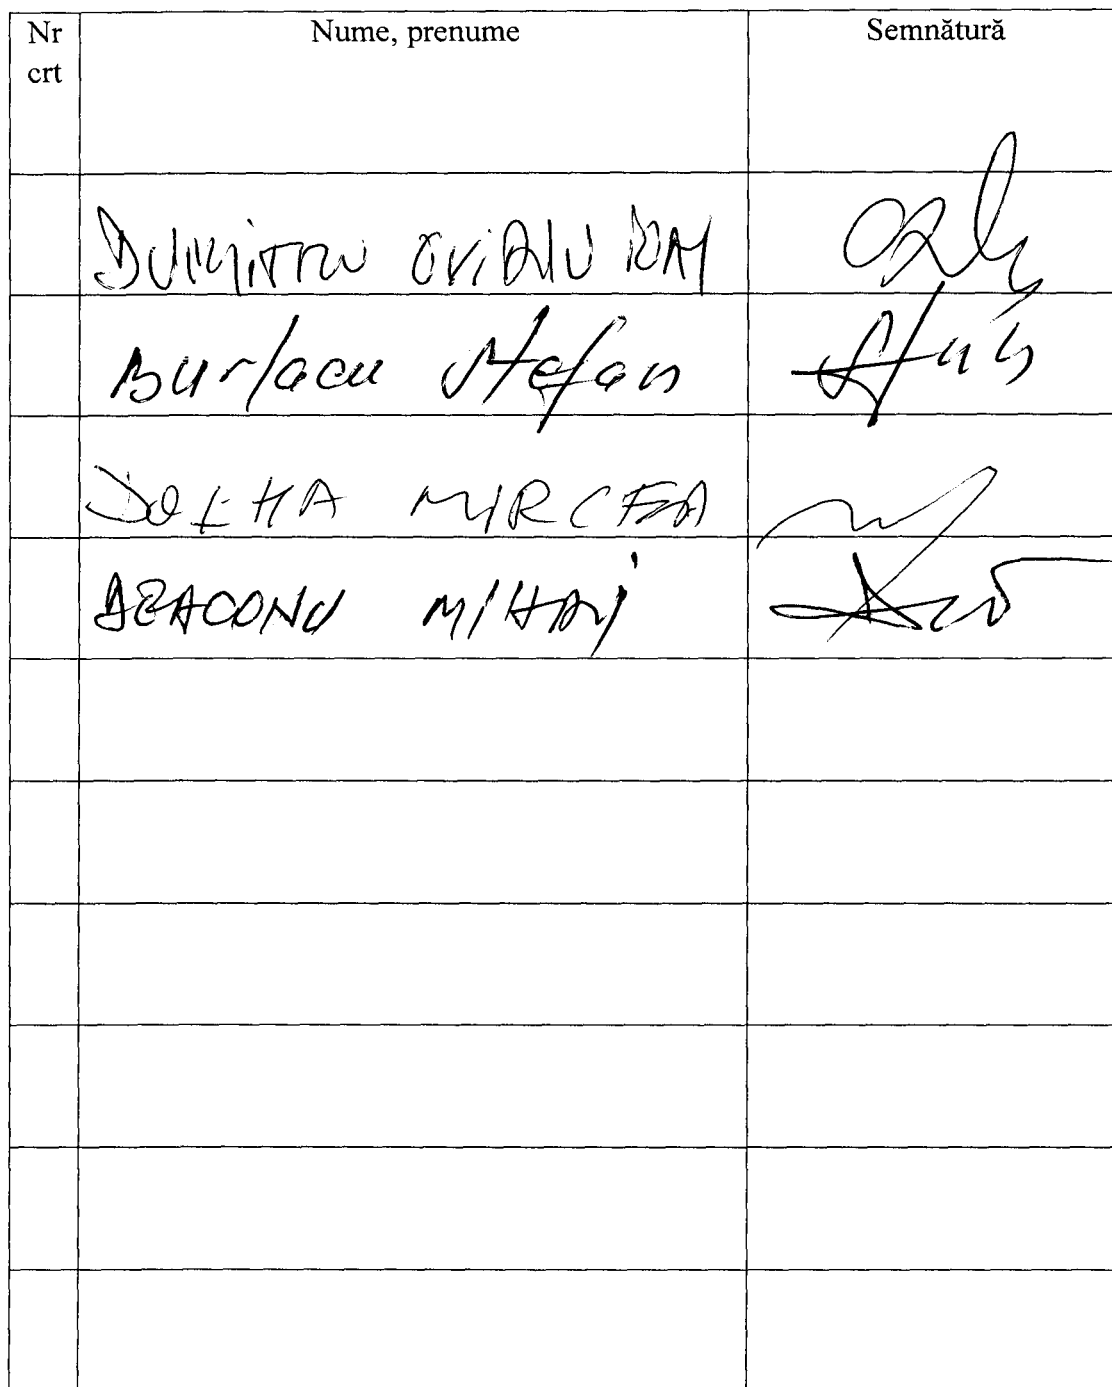 Nr crt Nume, prenume Semnătură
DUMITRU OVIDIU IOAN
Burlacu Stefan
DOLHA MIRCEA
DEACONU MIHAI